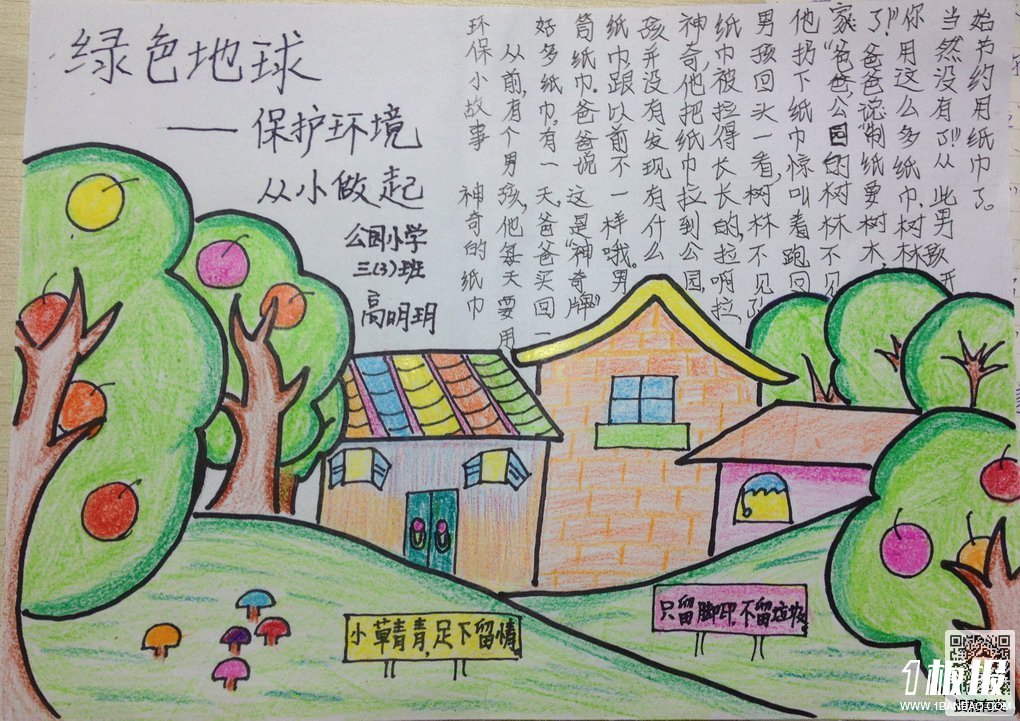 绿色地球
——保护环境
从小做起
公园小学
三(3)班
高明玥
环保小故事 神奇的纸巾
从前,有个男孩,他每天要用
好多纸巾,有一天,爸爸买回一
筒纸巾.爸爸说 这是“神奇牌”
纸巾跟以前不一样哦。男
孩并没有发现有什么
神奇,他把纸巾拉到公园,
纸巾被拉得长长的,拉啊拉,
男孩回头一看,树林不见了
他拐下纸巾惊叫着跑回
家“爸爸,公园的树林不见
了!”爸爸说“制纸要树木,
你用这么多纸巾.树林
当然没有了!”从此男孩开
始节约用纸巾了。
小草青青,足下留情
只留脚印,不留垃圾
1板报
WWW.1BANBAO.COM